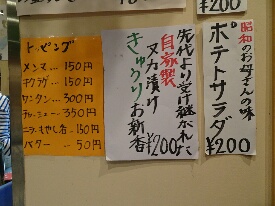 ¥200
昭和のお母さんの味
ポテトサラダ
¥200
先代より受け継がれた
自家製
ヌカ漬け
きゅうりお新香
¥200
トッピング
メンマ…150円
キクラゲ…150円
ワンタン…300円
チャーシュー…350円
ニラもやし…150円
バター…50円